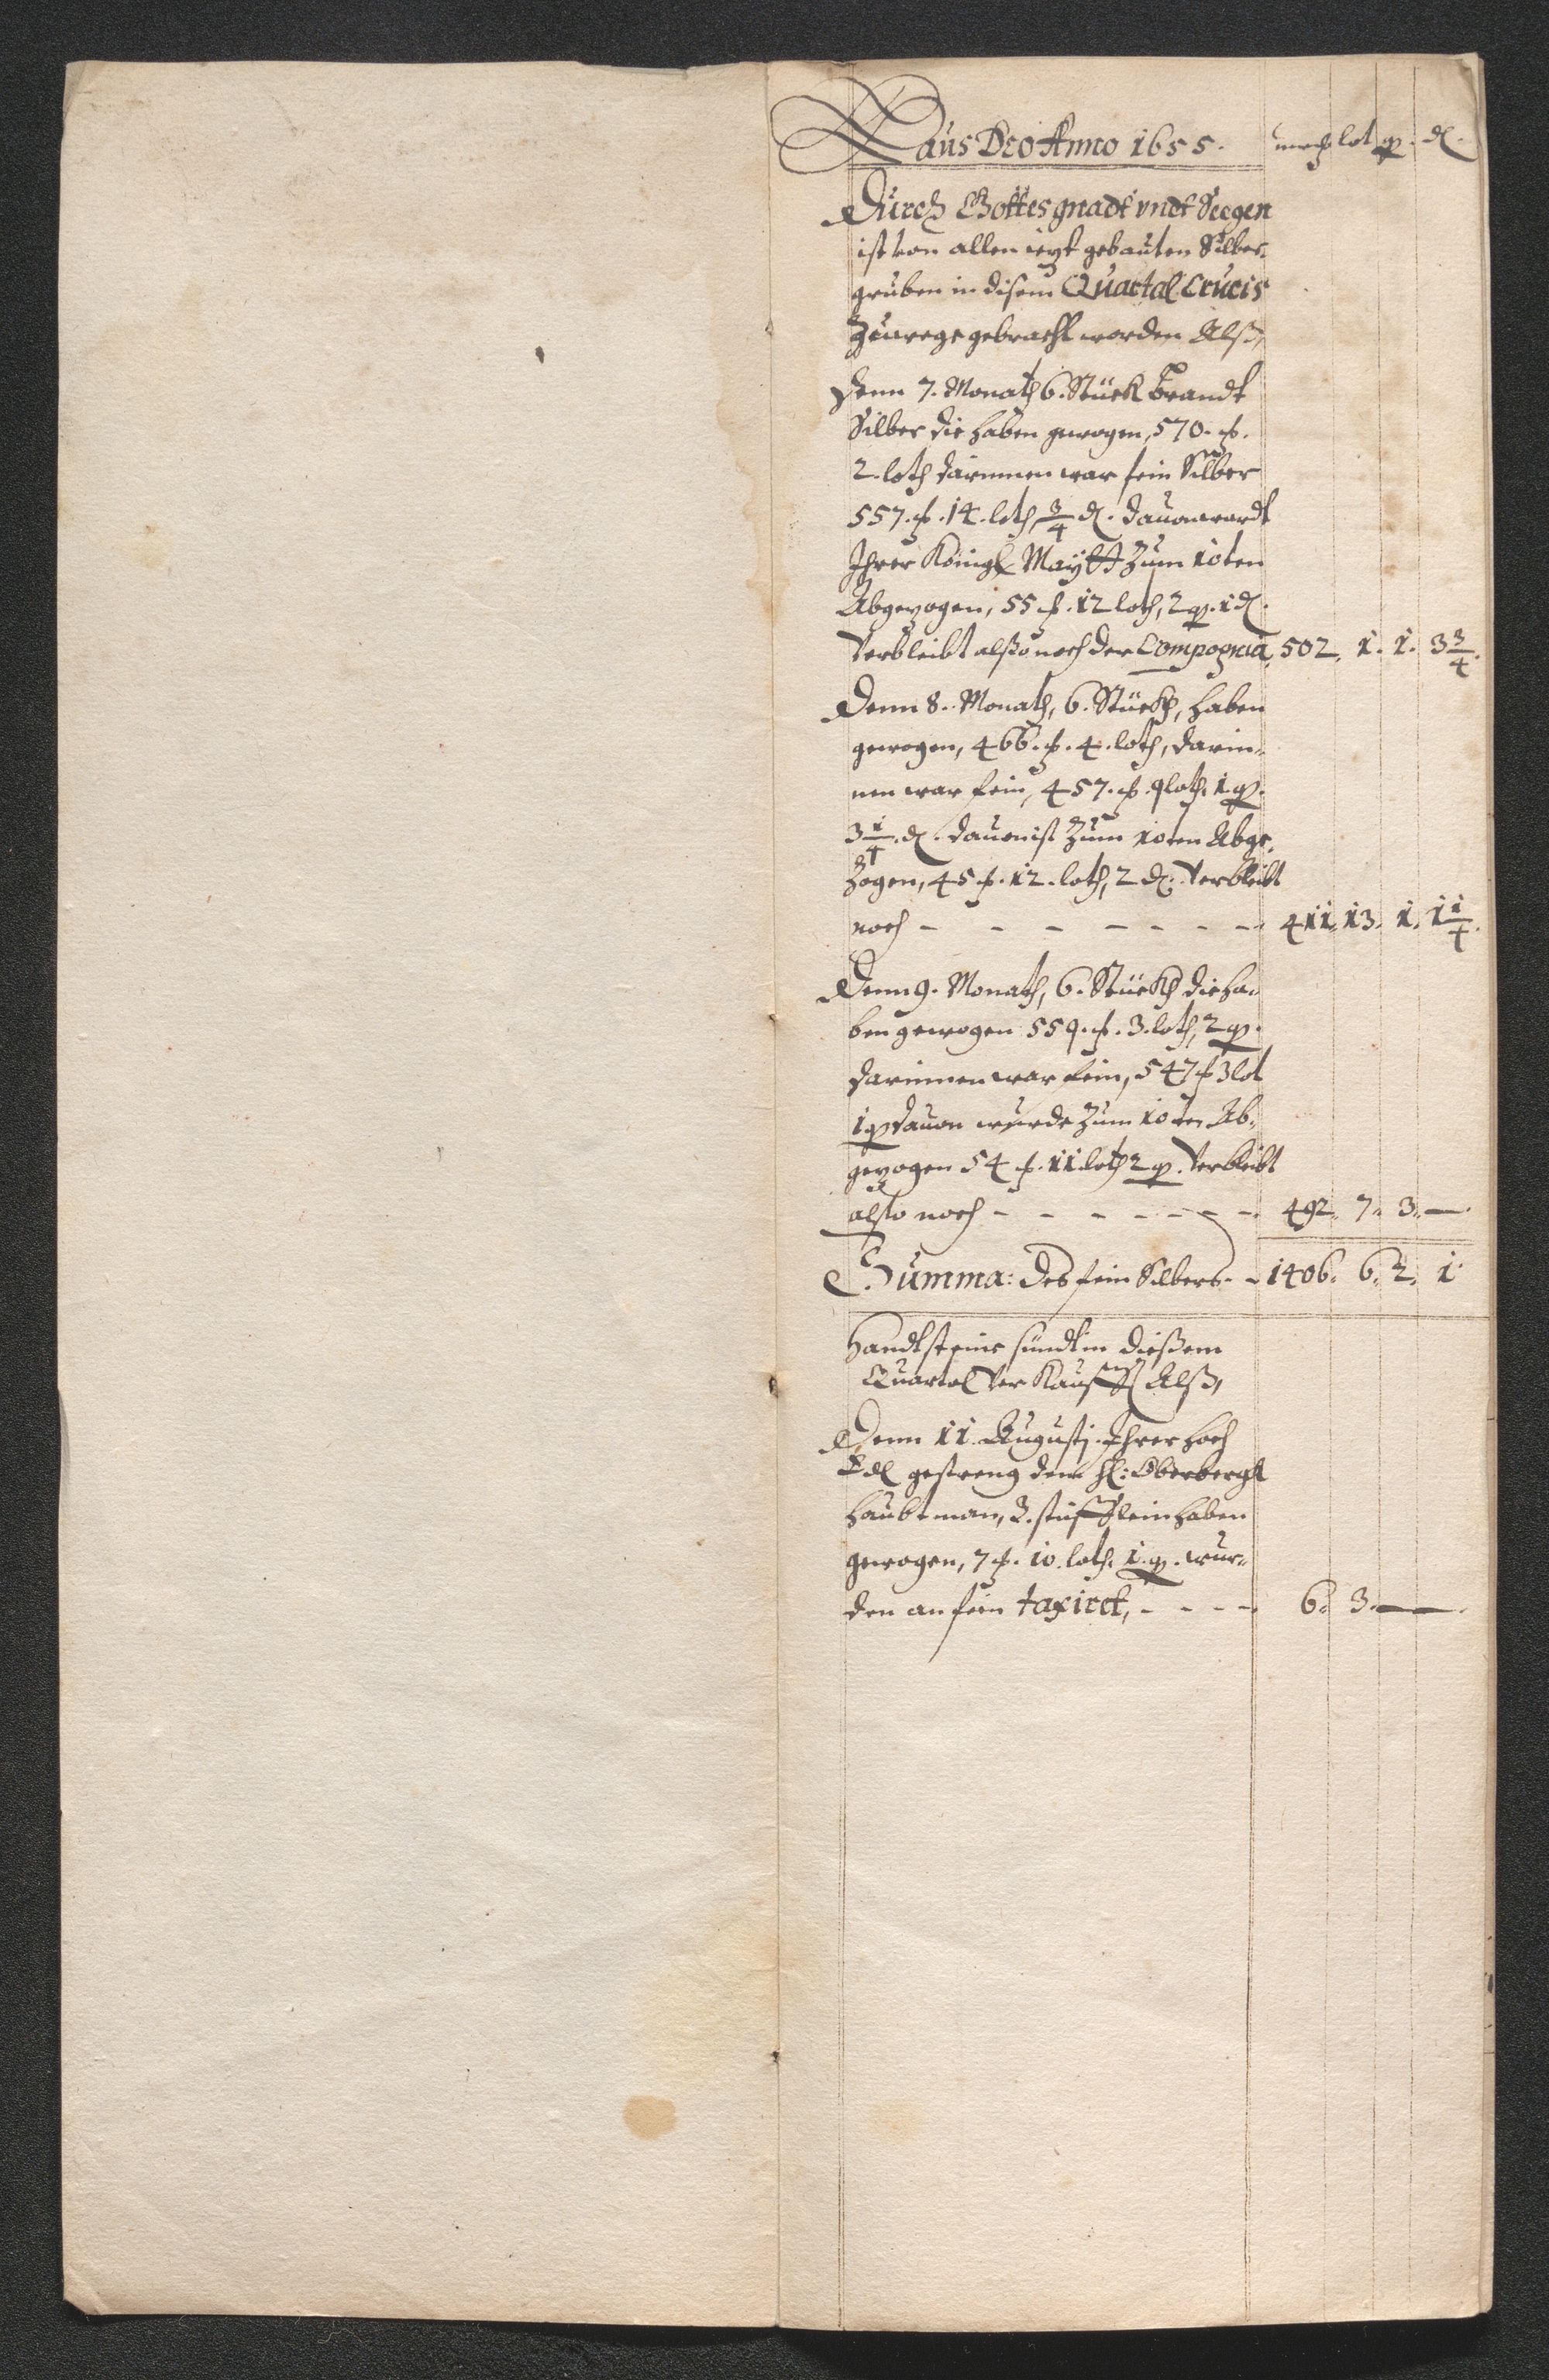 Laus Deo Anno 1655. march lot q. d.
Durch Gottes gnadt vndt Seegen
ist von allen ietzt gebauten Silber-
gruben in disem Quartal Crucis
zuwege gebracht worden Alß,
Denn 7. Monath 6. Stück Brandt
Silber die haben gewogen, 570. ℔.
2. loth darinnen war fein Silber
557. ℔. 14. loth, 3/4 d. dauon wardt
Ihrer Königl Maytt zum 10ten
Abgezogen, 55 ℔. 12 loth, 2 q. 1 d.
Verbleibt alßo noch der Compagnia, 502. 1. 1. 3 3/4.
Denn 8. Monath, 6. Stückh, haben
gewogen, 466. ℔. 4. loth, darin-
nen war fein, 457. ℔. 9 loth. 1 q.
3 1/4. d. dauon ist zum 10ten Abge-
zogen, 45 ℔. 12. loth, 2 d: Verbleibt
noch - - - - - - - 411. 13. 1. 1 1/4.
Denn 9. Monath, 6. Stückh die ha-
ben gewogen 559. ℔. 3. loth, 2 q.
darinnen war fein, 547 ℔ 3 lot
1 q dauon wurde zum 10ten Ab-
gezogen 54 ℔. 11 loth 2 q. Verbleibt
alßo noch - - - - - - - 492. 7. 3. —
Summa: des fein Silbers - - 1406. 6. 2. 1
Handtsteine sündt in dießem
Quartal Verkaufft Alß,
Denn 11. Augustj. Ihrer hoch
Edl gestreng dem H: Oberbergk
haubtman, 3. stüfflein haben
gewogen, 7 ℔. 10. loth. 1. q. wur-
den an fein taxiret, - - - - 6. 3. —